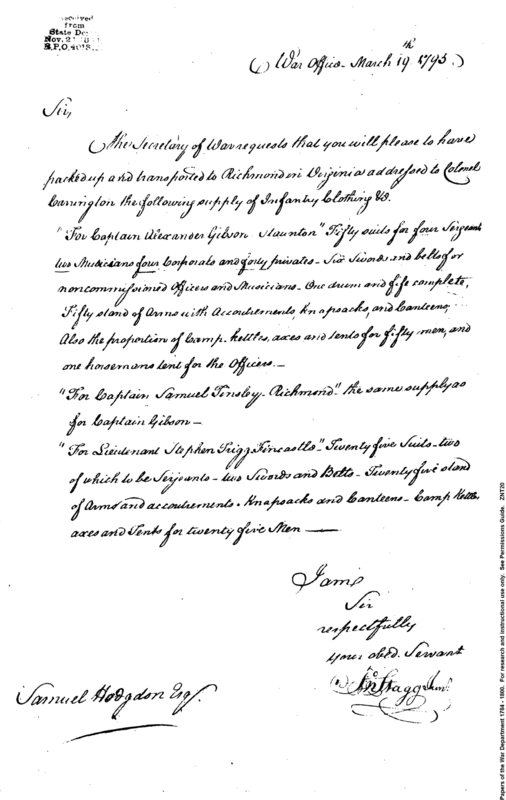 Received
from
State De
Nov. 2
S.P.O. 4018
War Office - March 19th 1795.
Sir,
The Secretary of War requests that you will please to have
packed up and transported to Richmond in Virginia addressed to Colonel
Carrington the following supply of Infantry Clothing &c.
"For Captain Alexander Gibson Staunton" Fifty suits for four Sergeants
two Musicians four Corporals and forty privates - Six Swords and belts for
noncommissioned Officers and Musicians - One drum and fife complete,
Fifty stand of Arms with Accoutrements, Knapsacks, and Canteens,
Also the proportion of Camp kettles, axes and tents for fifty men, and
one horsemans tent for the Officers. -
"For Captain Samuel Tinsley - Richmond" - the same supply as
for Captain Gibson -
"For Lieutenant Stephen Trigg Fincastle" - Twenty five Suits - two
of which to be Serjeants - two Swords and Belts - Twenty five stand
of Arms and accoutrements - Knapsacks and Canteens - Camp Kettles
axes and Tents for twenty five Men -
I am
Sir
respectfully
your obed. Servant
Jno Stagg Junr.
Samuel Hodgdon Esqr.
Papers of the War Department 1784 - 1800. For research and instructional use only. See Permissions Guide. ZNT20